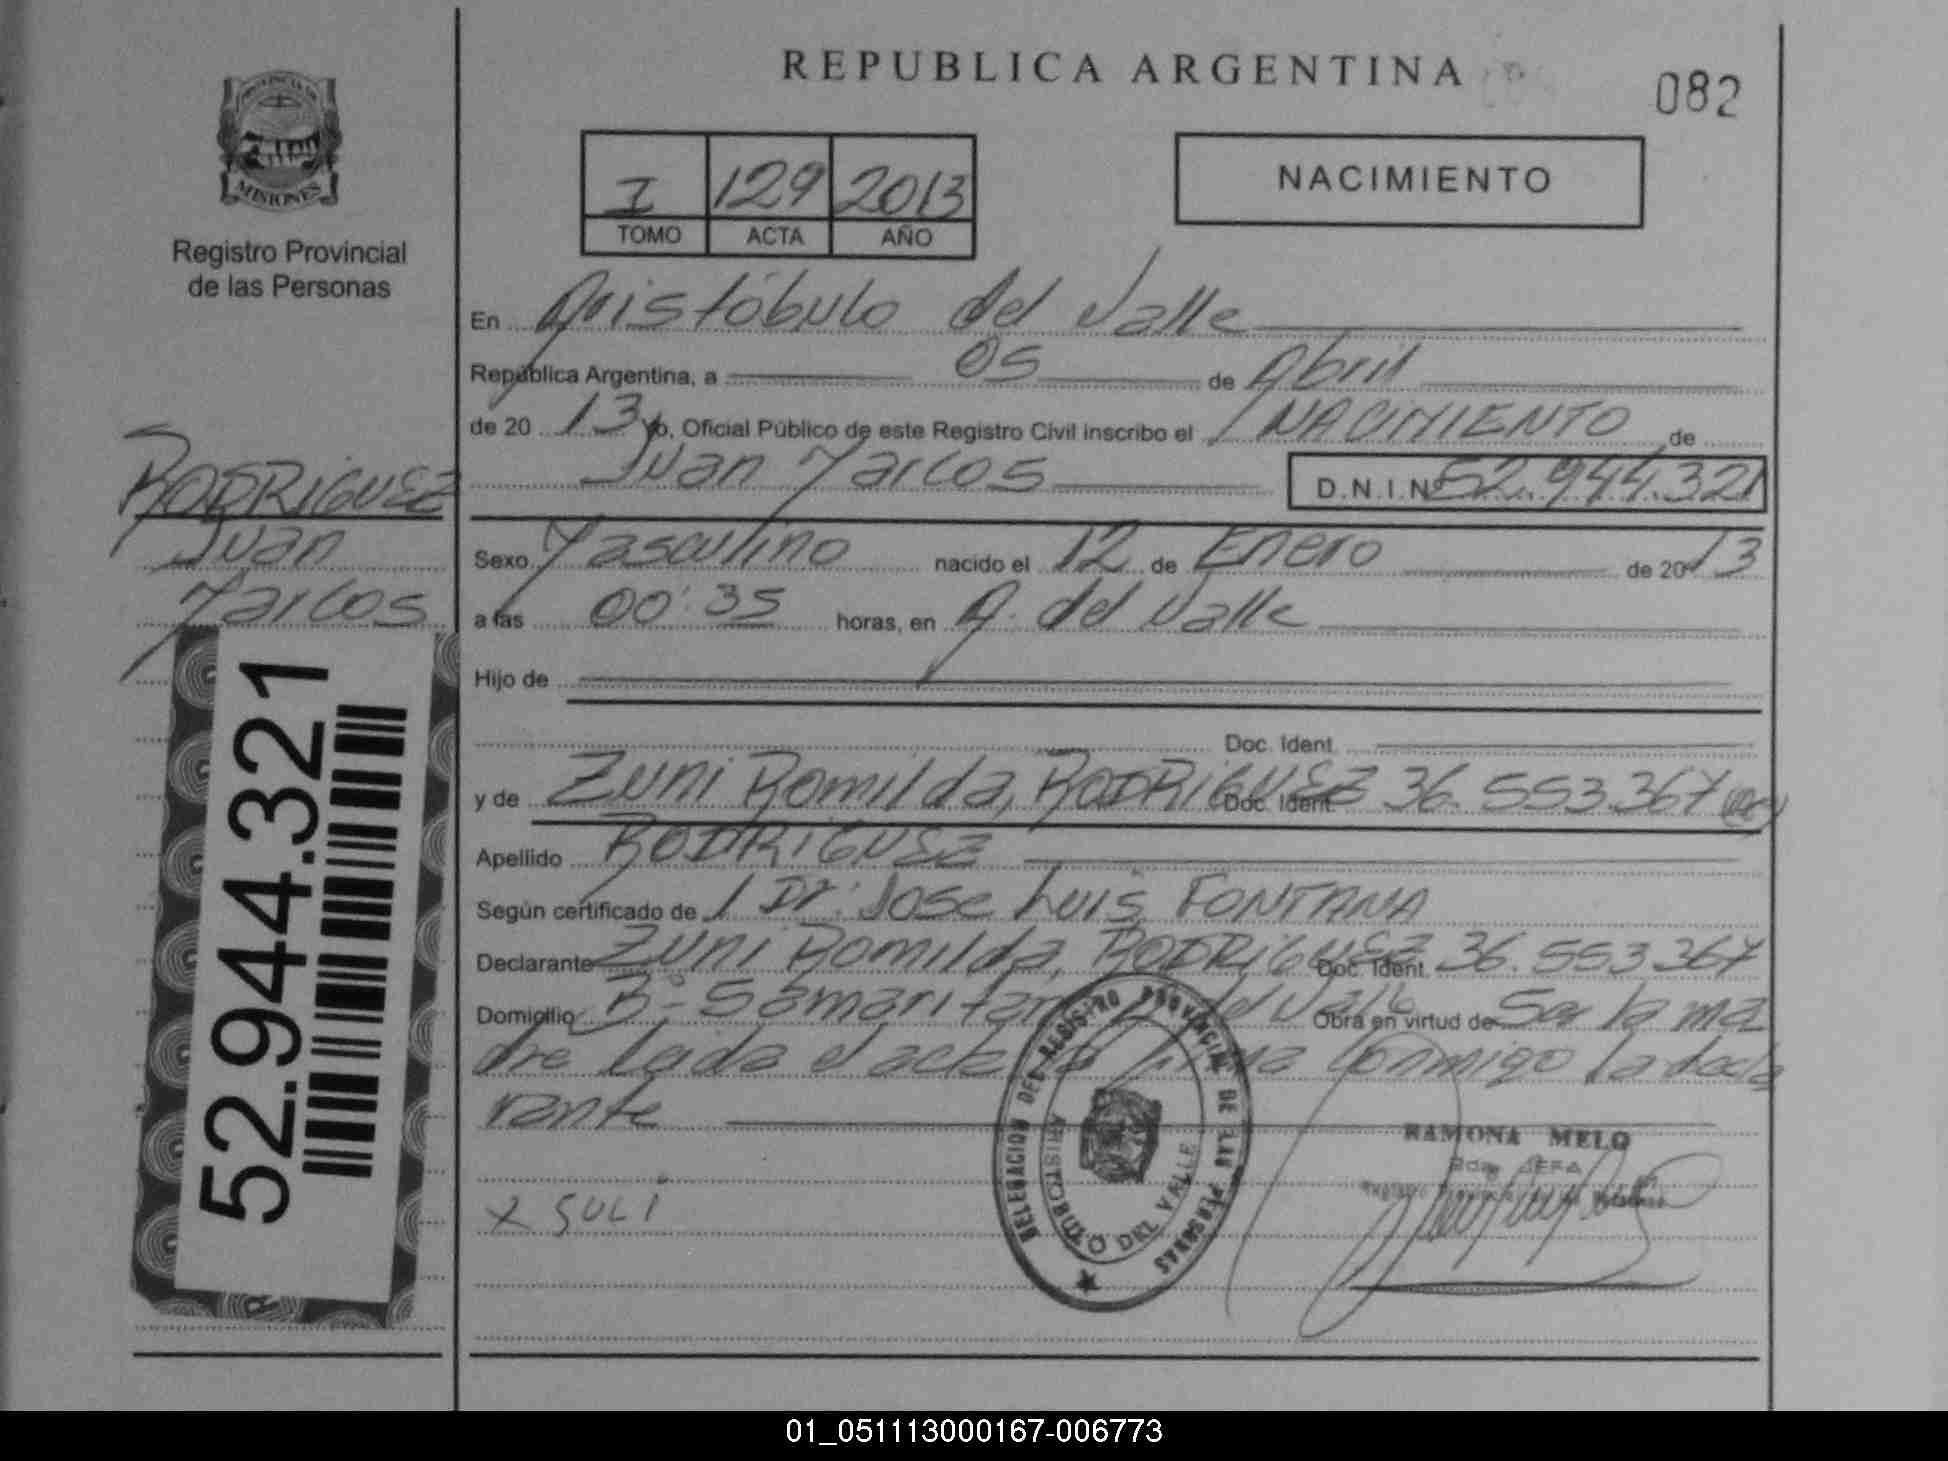 REPUBLICA ARGENTINA
082
PROVINCIA DE
MISIONES
Registro Provincial
de las Personas
I 129 2013
TOMO ACTA AÑO
NACIMIENTO
En Aristóbulo del Valle
República Argentina, a 05 de Abril
de 2013 Yo, Oficial Público de este Registro Civil inscribo el NACIMIENTO de
Juan Marcos D.N.I.Nº 52.944.321
RODRIGUEZ
Juan
Marcos
52.944.321
Sexo Masculino nacido el 12 de Enero de 2013
a las 00:35 horas, en A. del Valle
Hijo de
Doc. Ident.
y de Zuni Romilda, RODRIGUEZ Doc. Ident. 36.553.367
Apellido RODRIGUEZ
Según certificado de Dr. Jose Luis FONTANA
Declarante Zuni Romilda, RODRIGUEZ Doc. Ident. 36.553.367
Domicilio Bº Samaritano del Valle Obra en virtud de Ser la ma
dre Leida el acta la firma conmigo la decla
rante
DELEGACION DEL REGISTRO PROVINCIAL DE LAS PERSONAS
ARISTOBULO DEL VALLE
RAMONA MELO
2da JEFA
X SULI
01_051113000167-006773